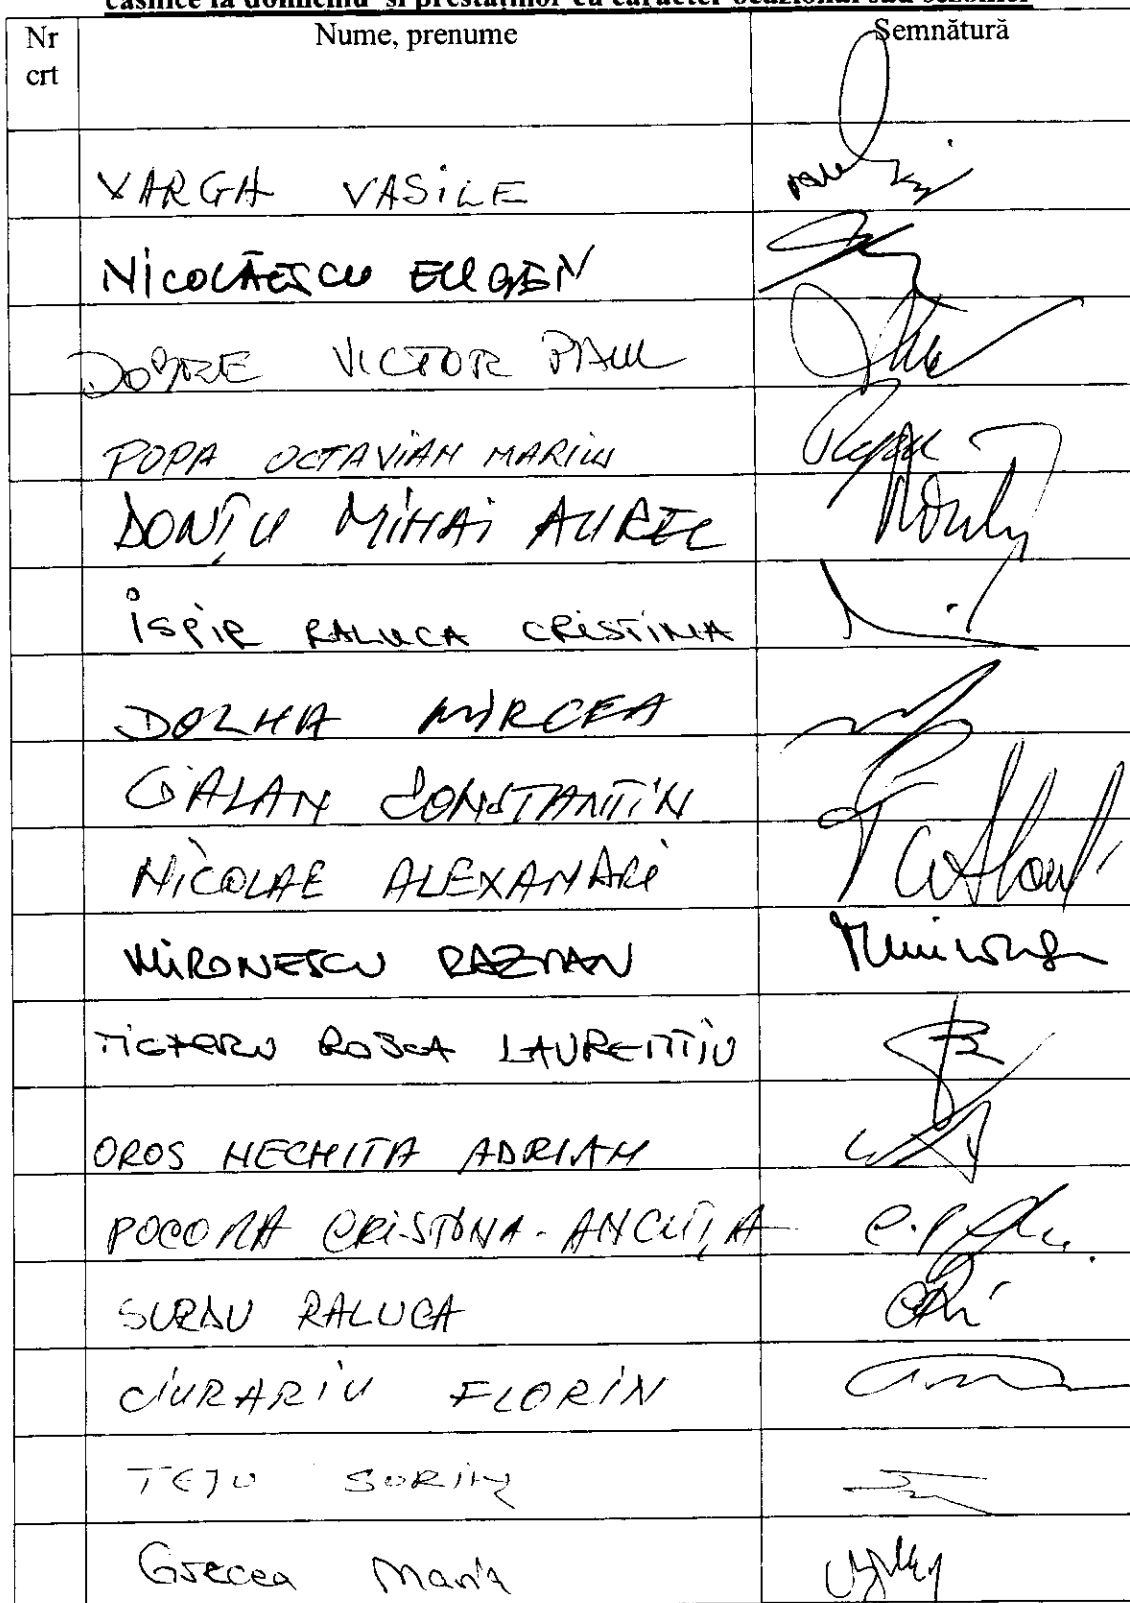 casnice la domiciliu și prestațiilor cu caracter ocazional sau sezonier
Nr crt Nume, prenume Semnătură
VARGA VASILE
NICOLĂESCU EUGEN
DOBRE VICTOR PAUL
POPA OCTAVIAN MARIUS
DONȚU MIHAI AUREL
ISPIR RALUCA CRISTINA
DOLHA MIRCEA
GALAN CONSTANTIN
NICOLAE ALEXANDRI
MIRONESCU RAZVAN
ROSCA LAURENTIU
OROS NECHITA ADRIAN
POCORA CRISTINA-ANCUȚA
SURDU RALUCA
CIURARIU FLORIN
TEJU SORIN
Grecea Maria